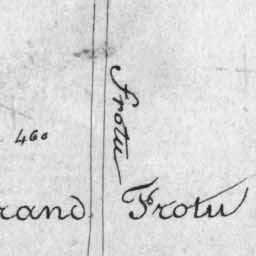 Frotu
460
rand Frotu